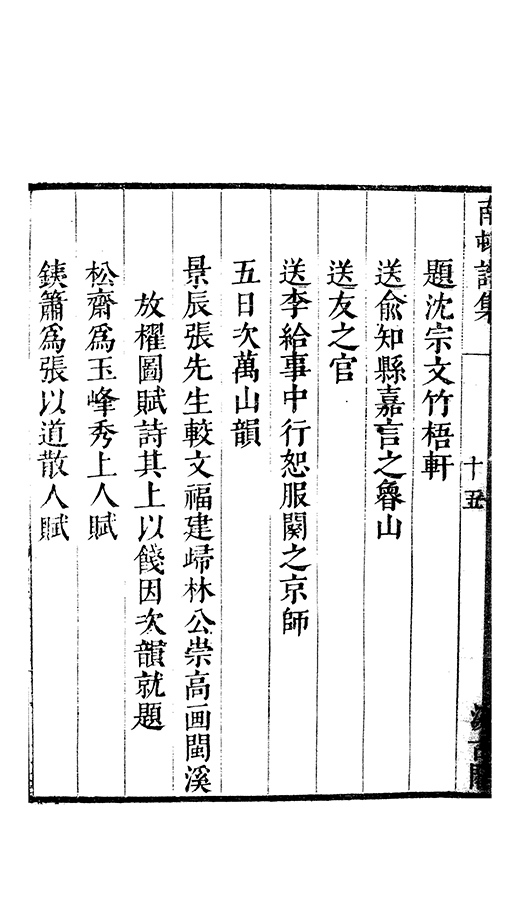 詩集
十五
題沈宗文竹梧軒
送俞知縣嘉言之魯山
送友之官
送李給事中行恕服闋之京師
五日次萬山韻
景辰張先生較文福建歸林公崇高画閩溪
放櫂圖賦詩其上以餞因次韻就題
松齋爲玉峰秀上人賦
鐵簫爲張以道散人賦